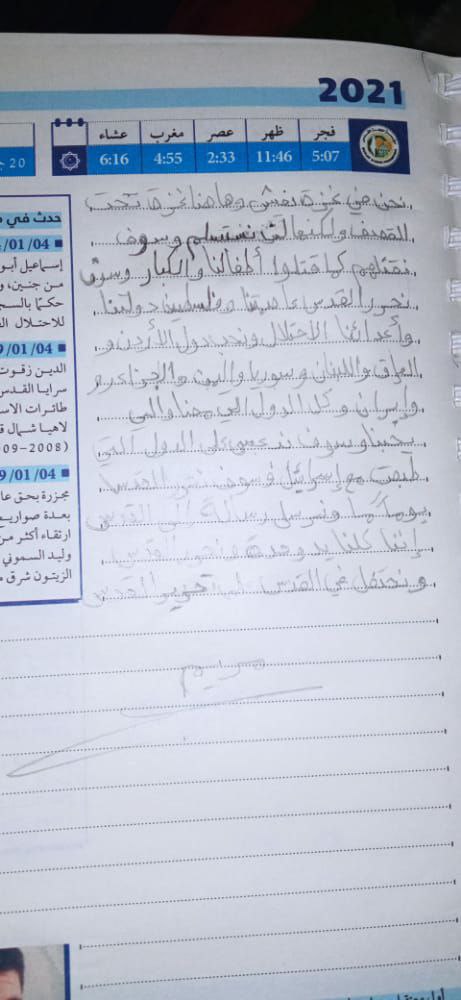 2021
فجر ظهر عصر مغرب عشاء
5:07 11:46 2:33 4:55 6:16
20
نحن في غزة نعيش وها هنا غزة تحت
القصف ولكنها لن نستسلم وسوف
نقتلهم كما قتلوا أطفالنا والكبار وسوف
نحرر القدس عاصمتنا وفلسطين دولتنا
وأعدائنا الاحتلال ونحب دول الأردن و
العراق واللبنان وسوريا واليمن والجزائر و
وإيران وكل الدول التي معنا والتي
يحبنا وسوف ندعس على الدول التي
طبعت مع إسرائيل فسوف نحرر القدس
يوماً ما ونرسل رسالة إلى القدس
إننا كلنا يد وحدة ونحرر القدس
ونحتفل في القدس تحرير القدس
مريم
حدث في
04/01/
إسماعيل أبو
من جنين، و
حكمًا بالسج
للاحتلال
04/01/
الدين زقوت
سرايا القدس
طائرات الاس
لاهيا شمال ق
(2008-09
04/01/
مجزرة بحق عا
بعدة صواريخ
ارتقاء أكثر من
وليد السموني
الزيتون شرق م